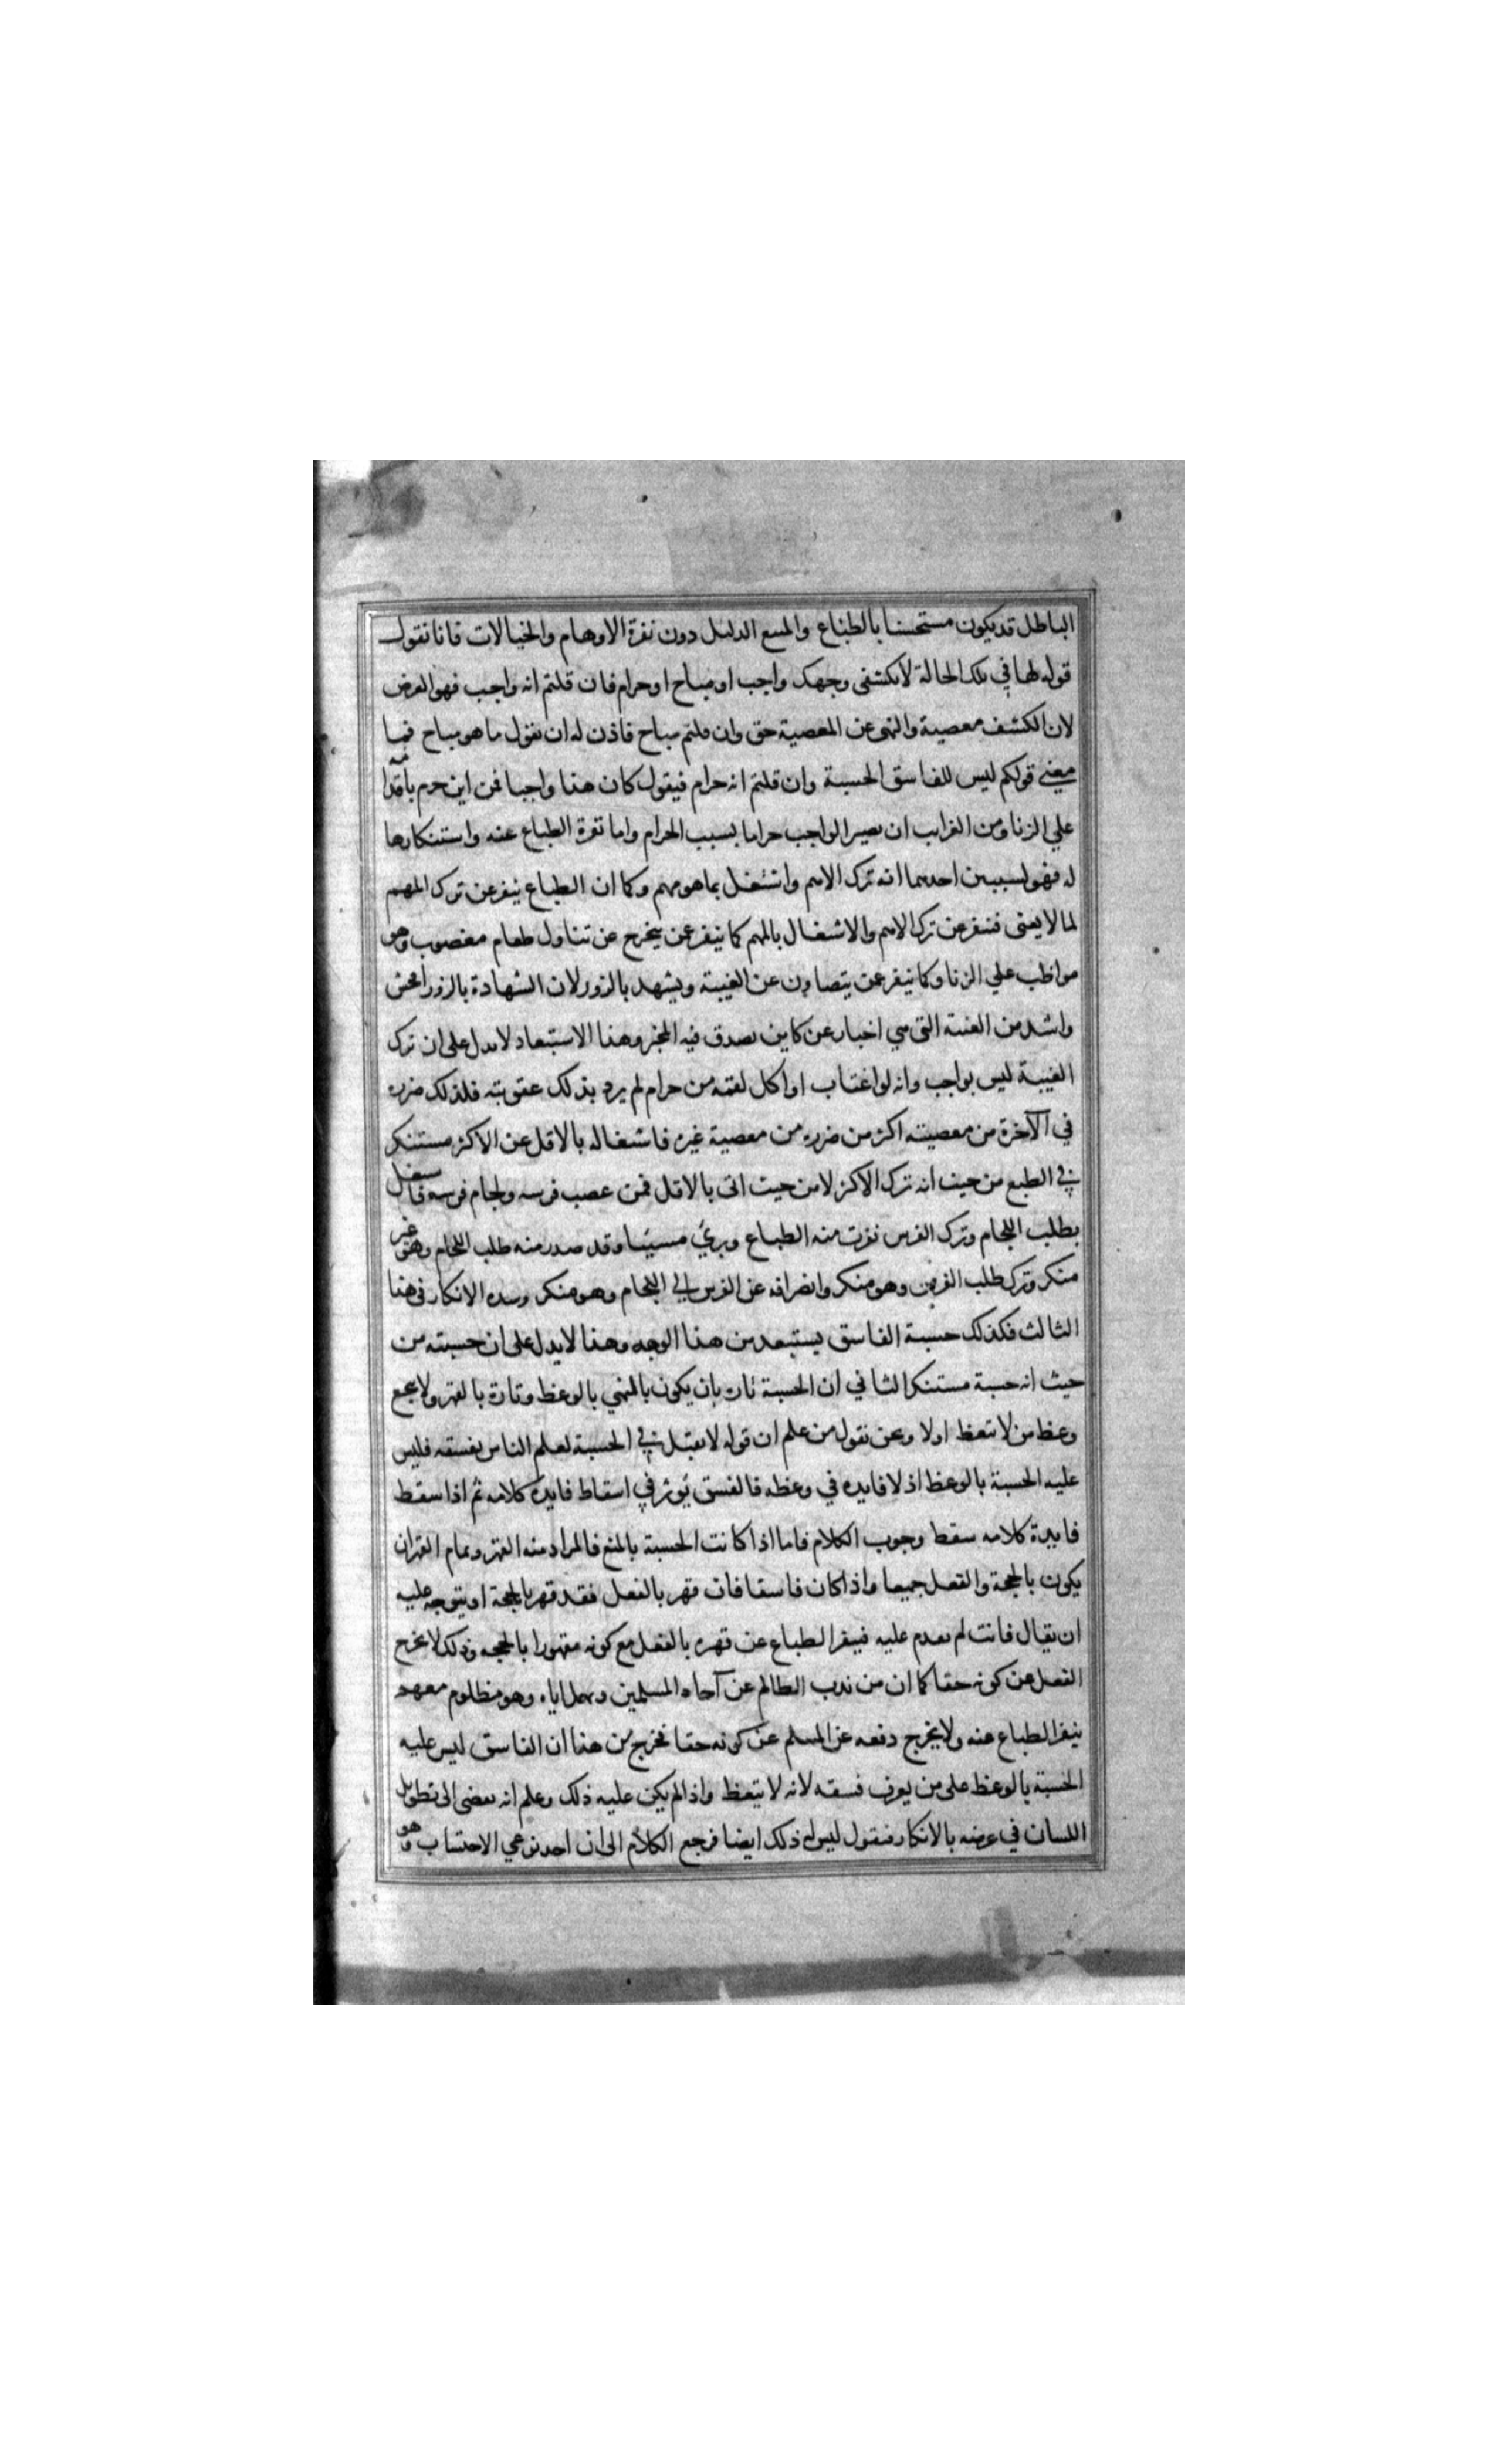 الباطل قد يكون مستحسنا بالطباع والمتبع الدليل دون نفرة الاوهام والخيالات فانا نقول
قوله لها في تلك الحالة لا تكشفى وجهك واجب او مباح او حرام فان قلتم انه واجب فهو الغرض
لان الكشف معصية والنهى عن المعصية حق وان قلتم مباح فاذن له ان يقول ما هو مباح فما
معنى قولكم ليس للفاسق الحسبة وان قلتم انه حرام فيقول كان هذا واجبا فمن اين حرم باقدامه
على الزنا ومن الغرايب ان يصير الواجب حراما بسبب الحرام واما نفرة الطباع عنه واستنكارها
له فهو لسببين احدهما انه ترك الاهم واشتغل بما هو مهم وكما ان الطباع ينفر عن ترك المهم
لما لا يعنى فتنفر عن ترك الاهم والاشتغال بالمهم كما ينفر عن يتحرج عن تناول طعام مغصوب وهو
مواظب علي الزنا وكما ينفر عمن يتصاون عن الغيبة ويشهد بالزور لان الشهادة بالزور افحش
واشد من الغيبة التى هي اخبار عن كاين يصدق فيه المخبر وهذا الاستبعاد لا يدل على ان ترك
الغيبة ليس بواجب وانه لو اغتاب او اكل لقمة من حرام لم يرد بذلك عقوبته فلذلك ضرره
في الآخرة من معصيته اكثر من ضرره من معصية غيره فاشتغاله بالاقل عن الاكثر مستنكر
في الطبع من حيث انه ترك الاكثر لا من حيث اتى بالاقل فمن غصب فرسه ولجام فرسه فاشتغل
بطلب اللجام وترك الفرس نفرت منه الطباع ويري مسيئا وقد صدر منه طلب اللجام وهو غير
منكر وترك طلب الفرس وهو منكر وانصرافه عن الفرس الي اللجام وهو منكر وشدة الانكار في هذا
الثالث فكذلك حسبة الفاسق يستبعد من هذا الوجه وهذا لا يدل على ان حسبته من
حيث انه حسبة مستنكر الثاني ان الحسبة تارة بان يكون بالنهي بالوعظ وتارة بالقهر ولا ينجع
وعظ من لا يتعظ اولا ونحن نقول من علم ان قوله لا يقبل في الحسبة لعلم الناس بفسقه فليس
عليه الحسبة بالوعظ اذ لا فايدة في وعظه فالفسق يؤثر في اسقاط فايدة كلامه ثم اذا سقط
فايدة كلامه سقط وجوب الكلام فاما اذا كانت الحسبة بالمنع فالمراد منه القهر وتمام القهر ان
يكون بالحجة والفعل جميعا واذا كان فاسقا فان قهر بالفعل فقد قهر بالحجة او يتوجه عليه
ان يقال فانت لم تقدم عليه فينفر الطباع عن قهره بالفعل مع كونه مقهورا بالحجة وذلك لا يخرج
الفعل عن كونه حقا كما ان من يذب الظالم عن آحاد المسلمين ويهمل اباه وهو مظلوم معهم
ينفر الطباع عنه ولا يخرج دفعه عن المسلم عن كونه حقا فخرج من هذا ان الفاسق ليس عليه
الحسبة بالوعظ على من يعرف فسقه لانه لا يتعظ واذا لم يكن عليه ذلك وعلم انه يفضى الى تطويل
اللسان في عرضه بالانكار فنقول ليس له ذلك ايضا فرجع الكلام الى ان احد نوعي الاحتساب وهو